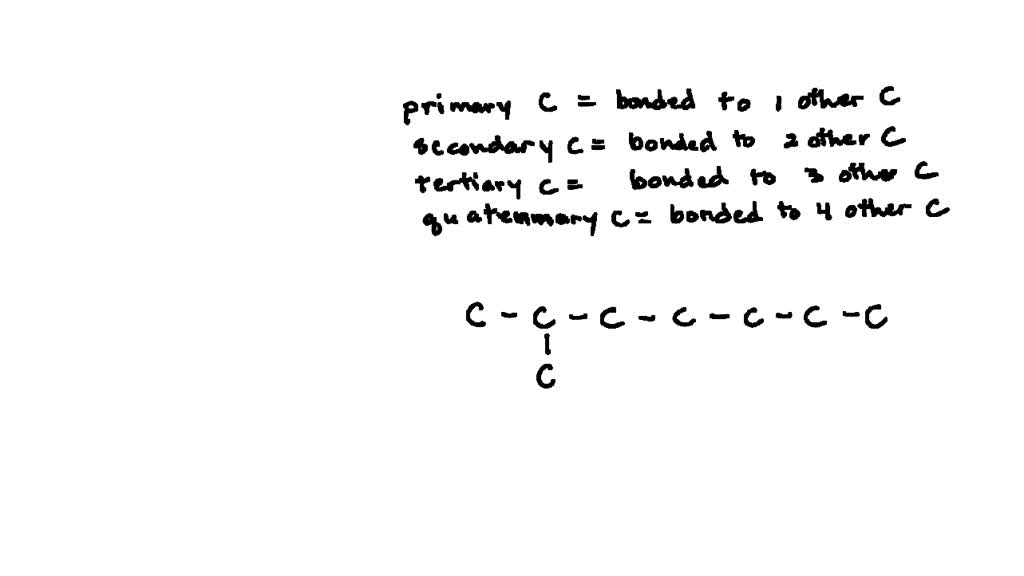 primary C = bonded to 1 other C
secondary C = bonded to 2 other C
tertiary C = bonded to 3 other C
quatemmary C = bonded to 4 other C
C - C - C - C - C - C - C
|
C